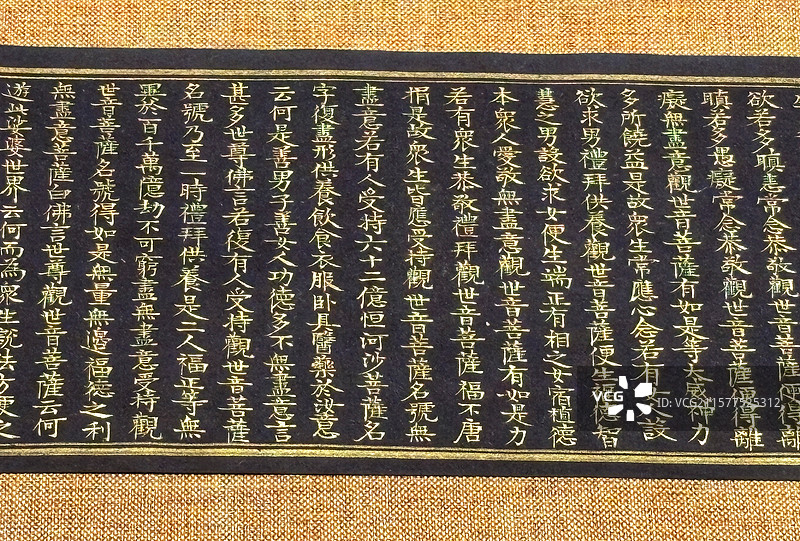 欲若多瞋恚常念恭敬觀世音菩薩便得離
瞋若多愚癡常念恭敬觀世音菩薩便得離
癡無盡意觀世音菩薩有如是等大威神力
多所饒益是故衆生常應心念若有女人設
欲求男禮拜供養觀世音菩薩便生福德智
慧之男設欲求女便生端正有相之女宿植德
本衆人愛敬無盡意觀世音菩薩有如是力
若有衆生恭敬禮拜觀世音菩薩福不唐
捐是故衆生皆應受持觀世音菩薩名號無
盡意若有人受持六十二億恒河沙菩薩名
字復盡形供養飲食衣服卧具醫藥於汝意
云何是善男子善女人功德多不無盡意言
甚多世尊佛言若復有人受持觀世音菩薩
名號乃至一時禮拜供養是二人福正等無
異於百千萬億劫不可窮盡無盡意受持觀
世音菩薩名號得如是無量無邊福德之利
無盡意菩薩白佛言世尊觀世音菩薩云何
遊此娑婆世界云何而爲衆生說法方便之
VCG
ID:VCG211577525312